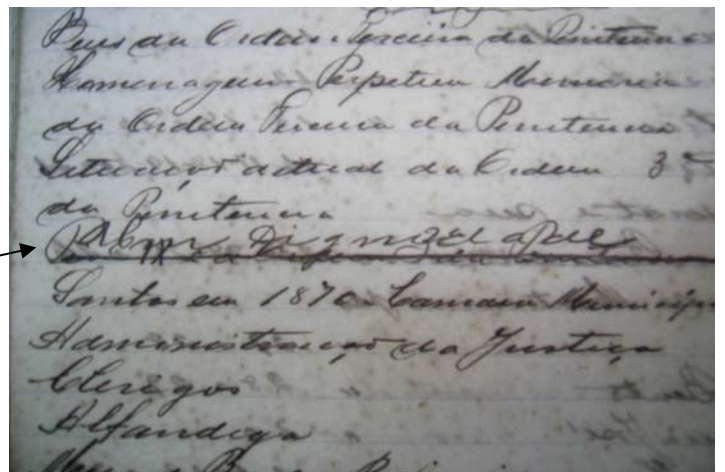 Bens da Ordem Terceira da Penitencia
Homenagem Perpetua Memoria
da Ordem Terceira da Penitencia
Situação actual da Ordem 3ª
da Penitencia
Santos em 1870 Camara Municipal
Administração da Justiça
Clerigos
Alfandega